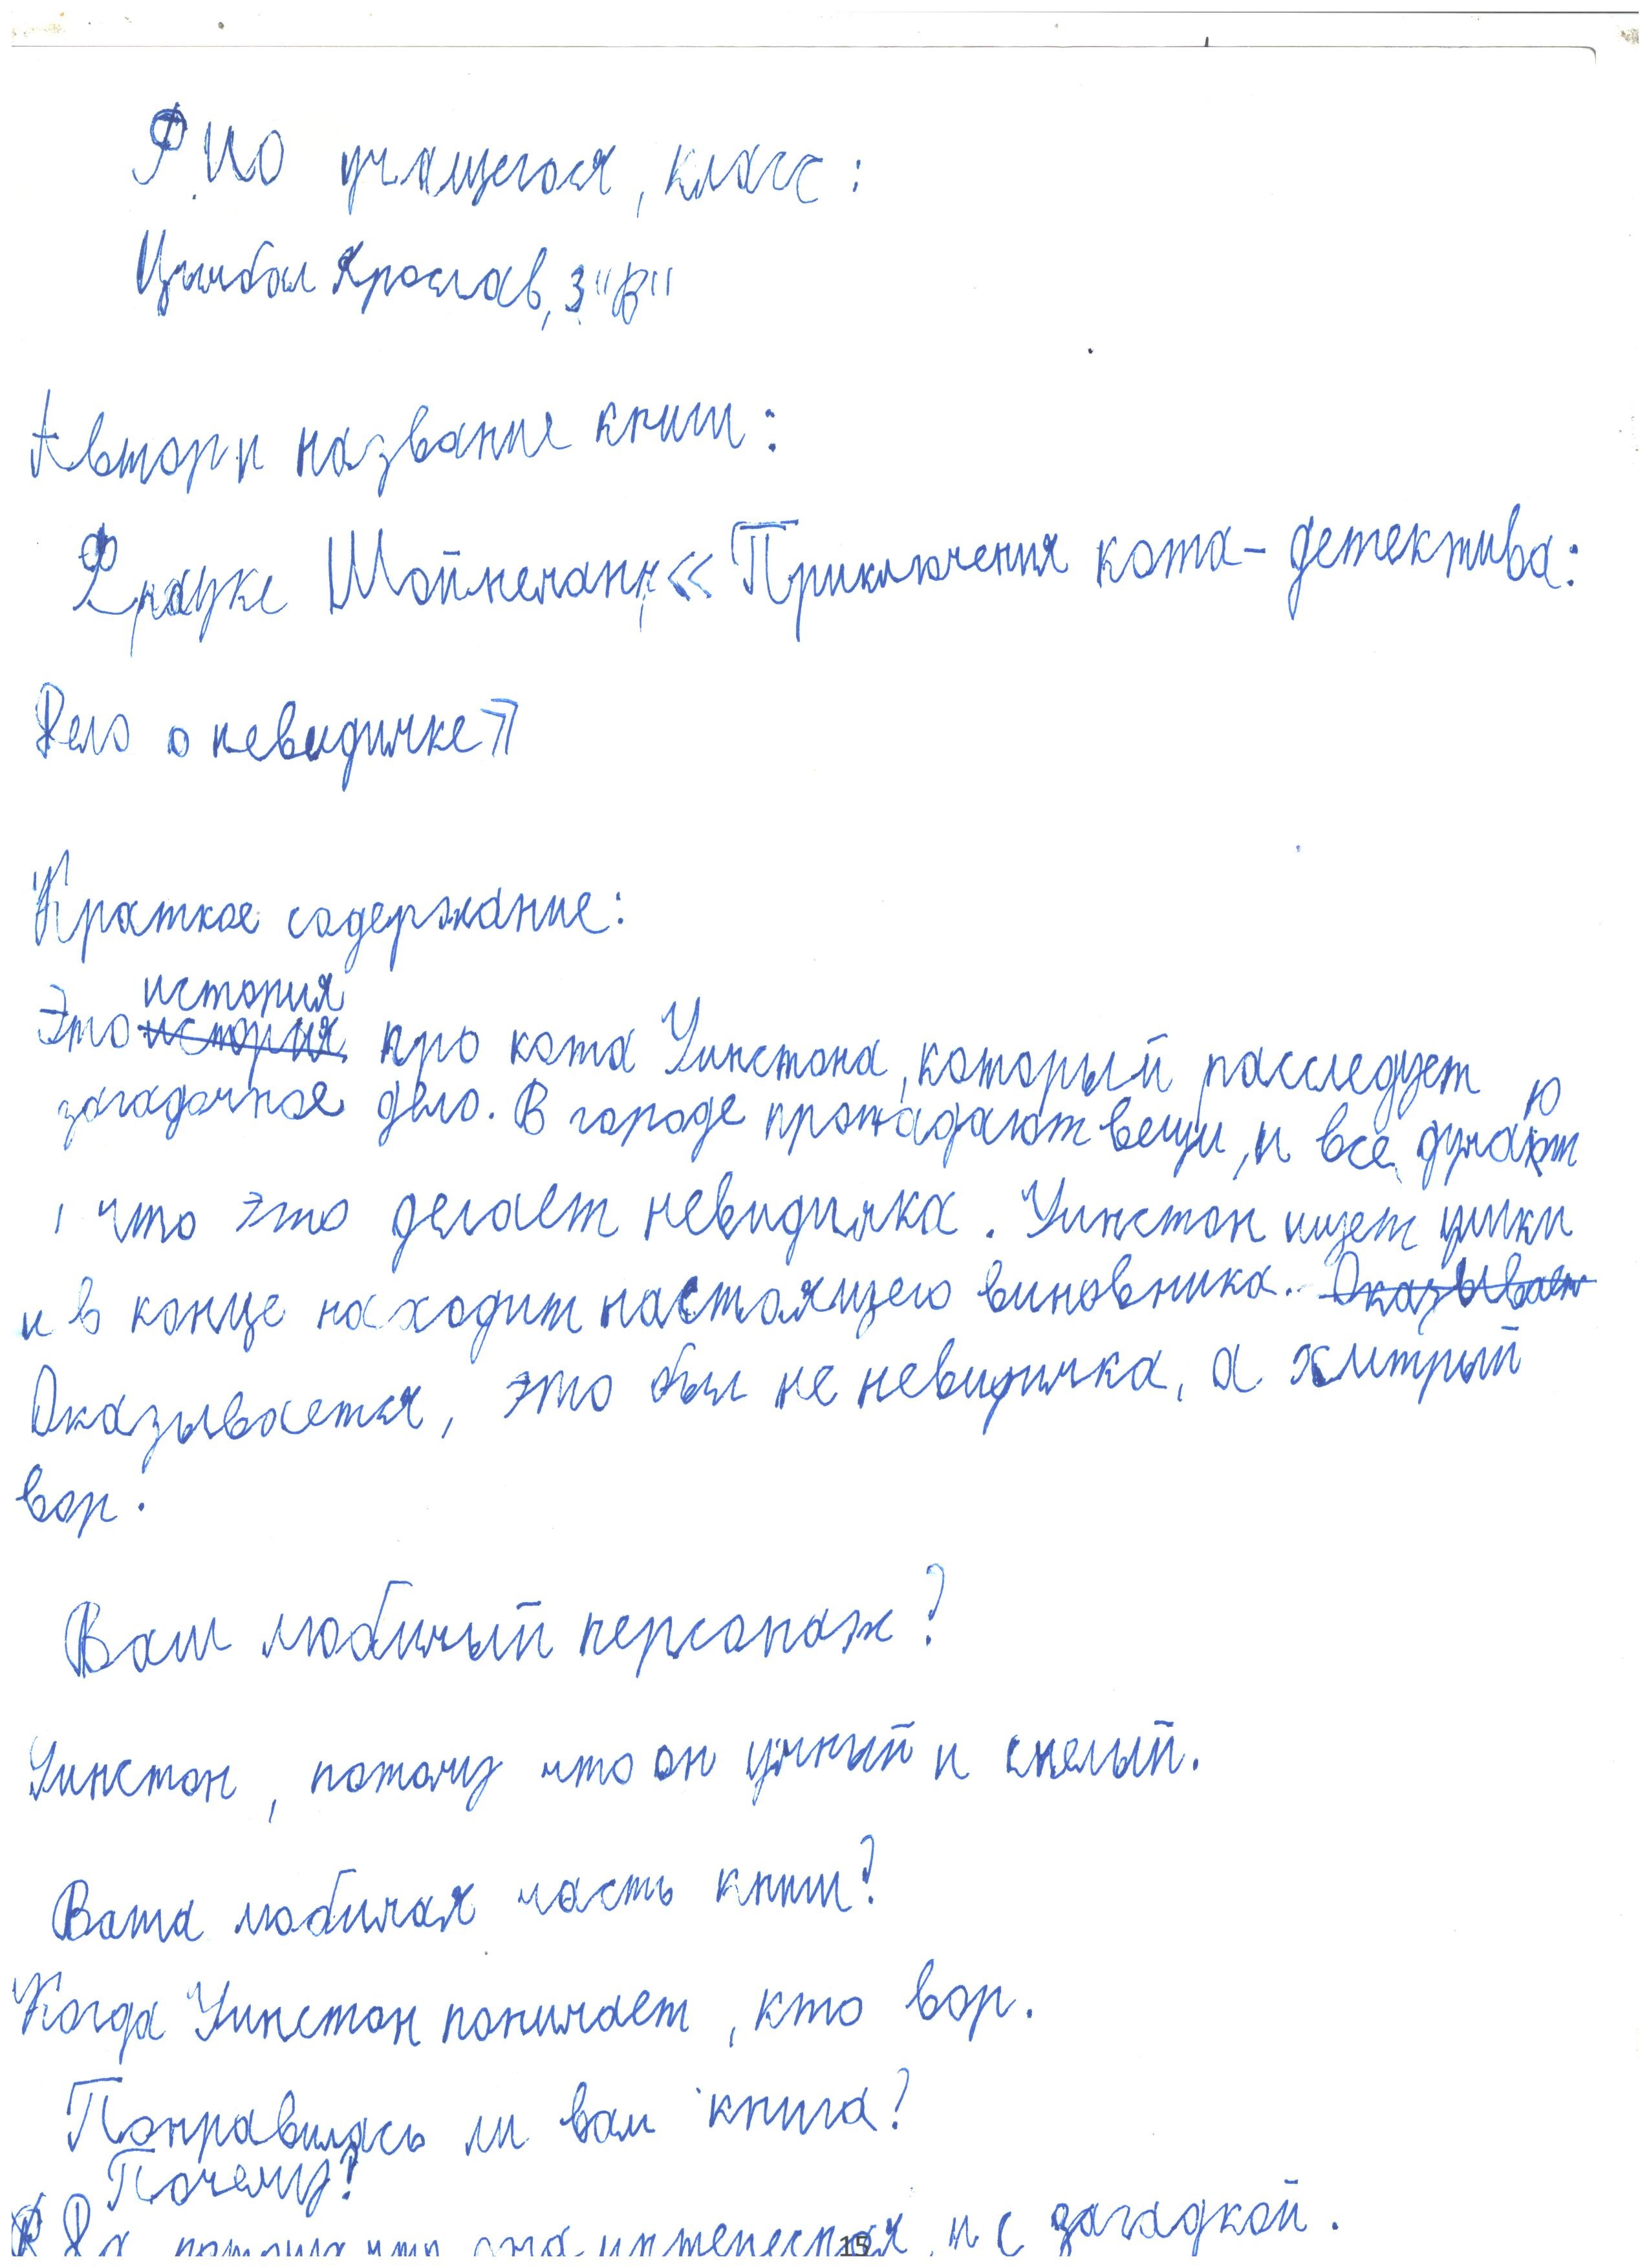 ФИО учащегося, класс:
Цымбал Ярослав, 3 "В"
Автор и название книги:
Фрауке Шойнеманн, «Приключения кота-детектива:
Дело о невидимке»
Краткое содержание:
история
Это история про кота Уинстона, который расследует
загадочное дело. В городе пропадают вещи, и все думают
, что это делает невидимка. Уинстон ищет улики
и в конце находит настоящего виновника. Оказывает
Оказывается, это был не невидимка, а хитрый
вор.
Ваш любимый персонаж?
Уинстон, потому что он умный и смелый.
Ваша любимая часть книги?
Когда Уинстон понимает, кто вор.
Понравилась ли вам книга?
Почему?
Да, потому что она интересная и с загадкой.
15